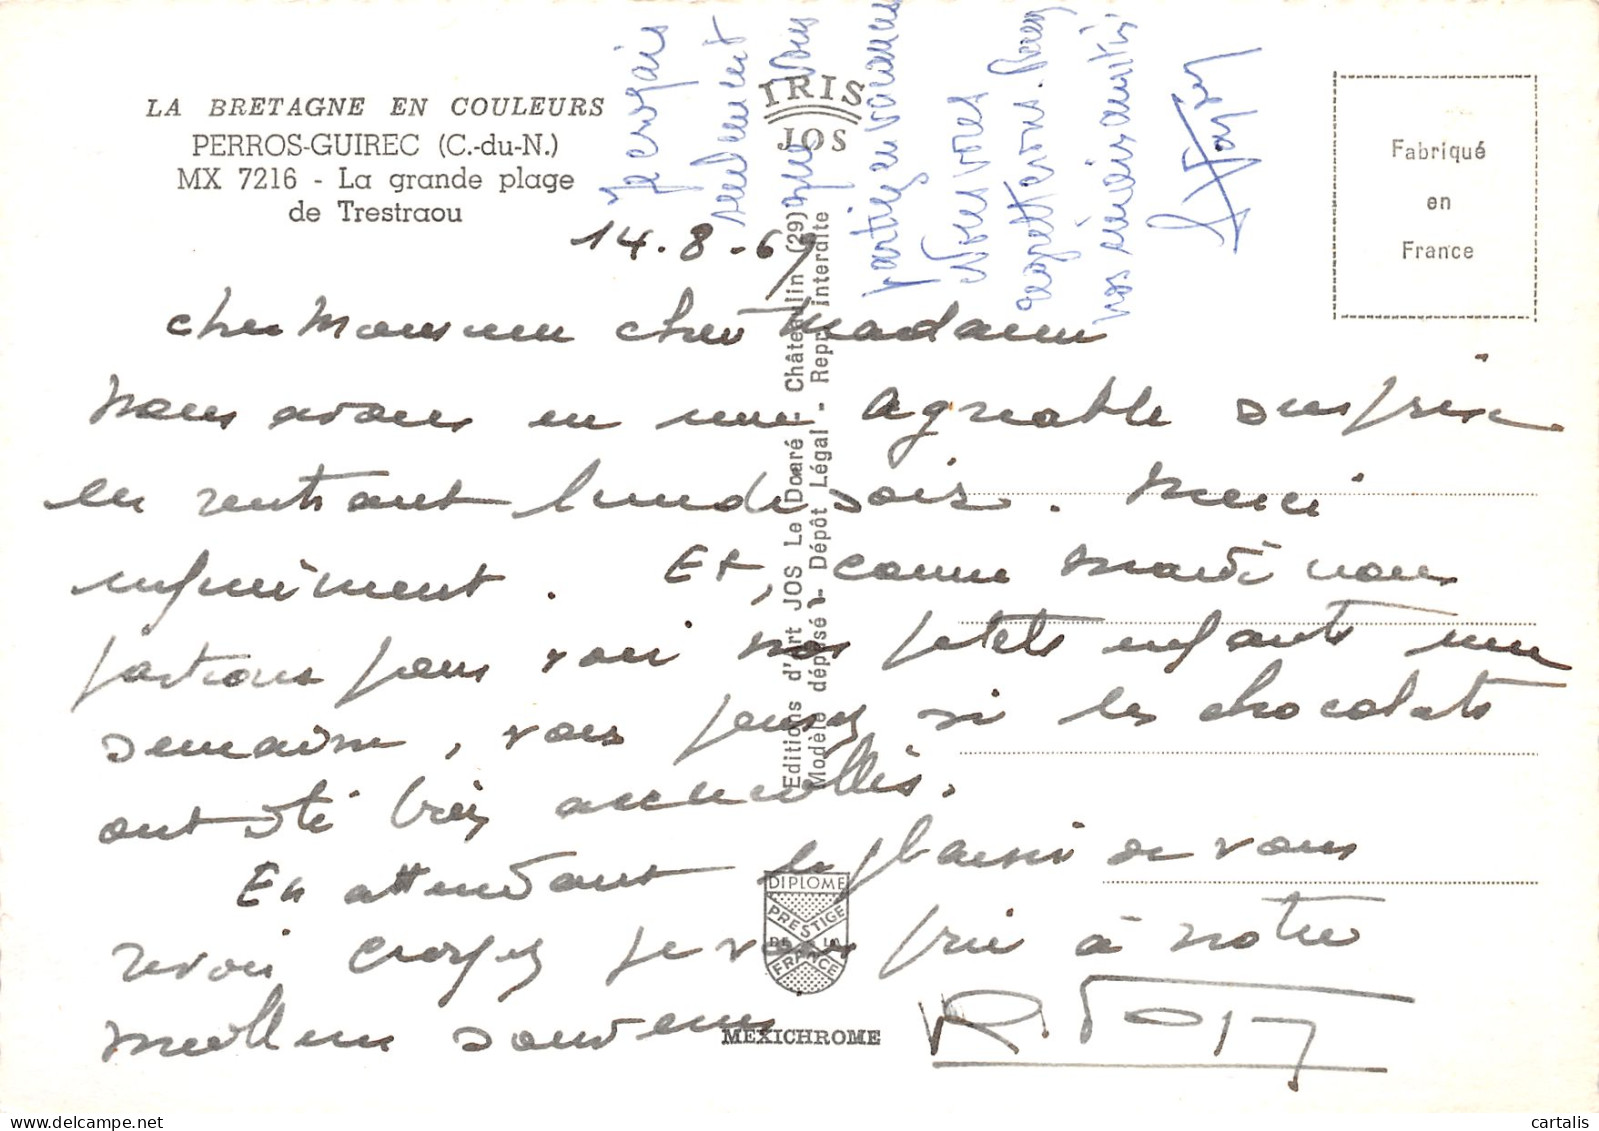 LA BRETAGNE EN COULEURS
PERROS-GUIREC (C.-du-N.)
MX 7216 - La grande plage
de Trestraou
IRIS
JOS
Fabriqué
en
France
14.8-69
cher Monsieur cher Madame
Nous avons eu une agréable surprise
en rentrant lundi soir. Merci
infiniment. Et, comme mardi nous
partions pour voir nos petits enfants une
semaine, vous pensez si les chocolats
ont été très accueillis.
En attendant le plaisir de vous
revoir croyez je vous prie à notre
meilleur souvenir
Je croyais
seulement
que vous
partiez en vacances
Nous vous
regretterons.
nos sincères amitiés
Editions d'art JOS Le Doaré - Châteaulin (29)
Modèle déposé - Dépôt Légal - Repr. interdite
DIPLOME
PRESTIGE
DE LA
FRANCE
MEXICHROME
cartalis